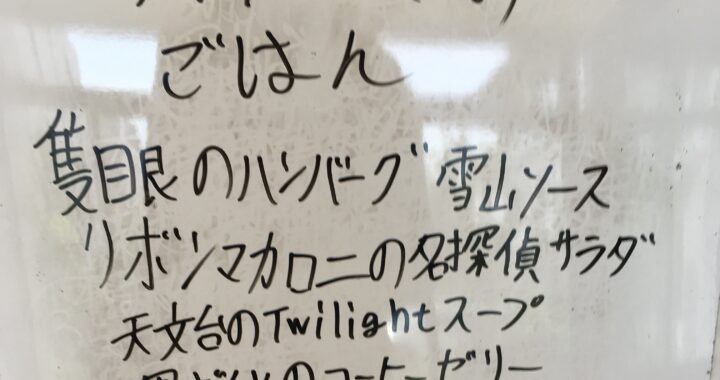 ごはん
隻眼のハンバーグ 雪山ソース
リボンマカロニの名探偵サラダ
天文台のTwilightスープ
のコーヒーゼリー